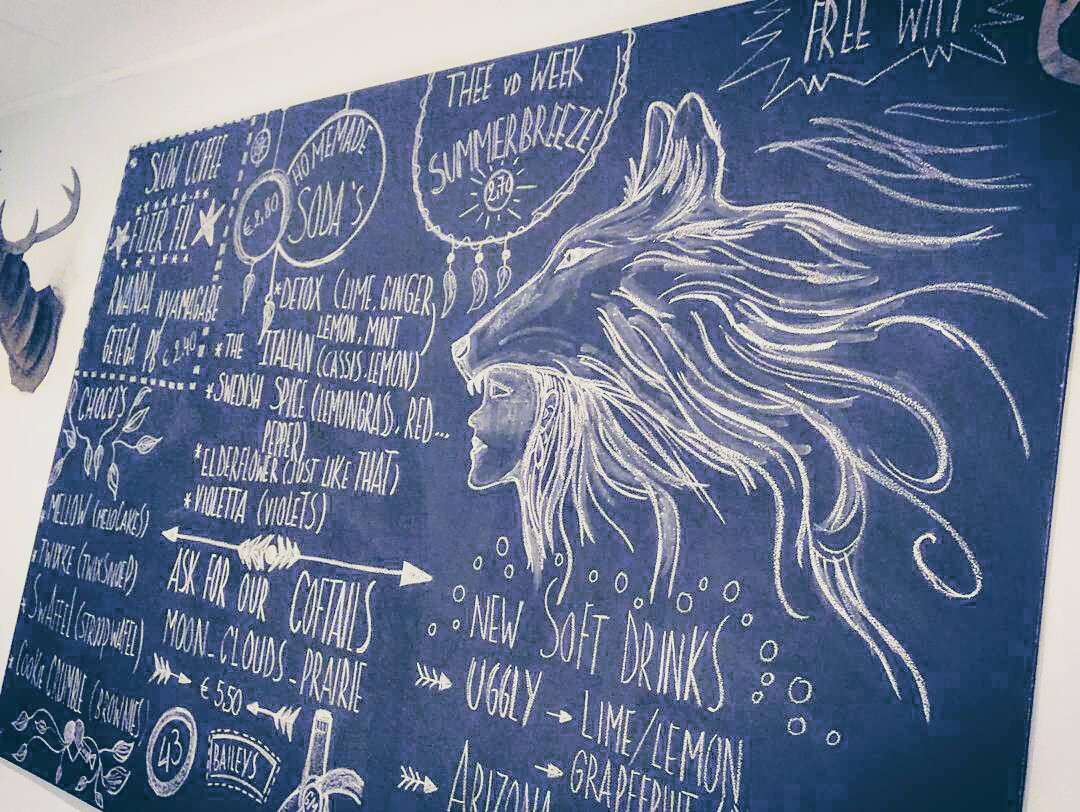 FREE WIFI
SLOW COFFEE
FILTER FIL
RWANDA NYAMAGABE
GITEGA PB € 2.40
HOMEMADE
SODA'S
€ 2.80
*DETOX (LIME, GINGER,
LEMON, MINT)
*THE ITALIAN (CASSIS-LEMON)
*SWEDISH SPICE (LEMONGRASS, RED...
PEPPER)
*ELDERFLOWER (JUST LIKE THAT)
*VIOLETTA (VIOLETS)
THEE VD WEEK
SUMMERBREEZE
2.70
CHOCO'S
MELLOW (MELOCAKES)
SWAFFEL (STROOPWAFEL)
COOKIE CRUMBLE (BROWNIES)
ASK FOR OUR COFTAILS
MOON_CLOUDS_PRAIRIE
€ 5.50
43
BAILEYS
NEW SOFT DRINKS
UGGLY → LIME/LEMON
→ GRAPEFRUIT
ARIZONA